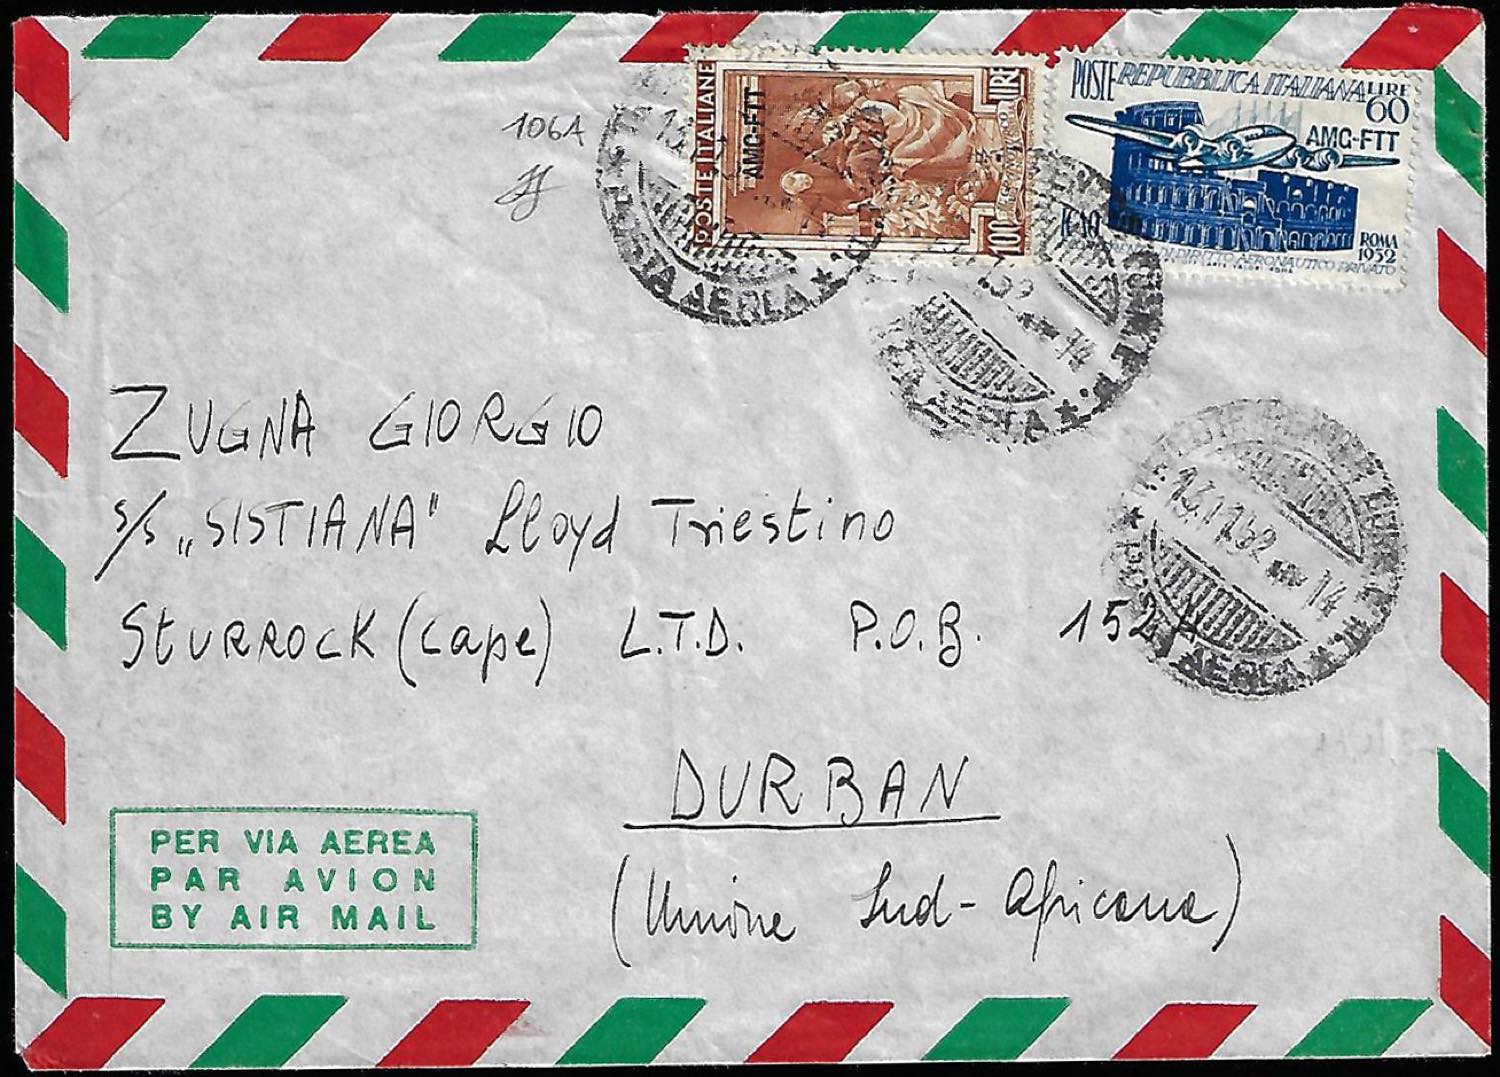 106A
POSTE ITALIANE
AMG-FTT
LIRE
100
POSTE REPUBBLICA ITALIANA LIRE
60
AMG-FTT
ICAO
ROMA
1952
DI DIRITTO AERONAUTICO PRIVATO
POSTA AEREA
52 14
AEREA
52 14
AEREA
ZUGNA GIORGIO
S/S „SISTIANA" Lloyd Triestino
STURROCK (Cape) L.T.D. P.O.B.
DURBAN
(Unione Sud-Africana)
PER VIA AEREA
PAR AVION
BY AIR MAIL